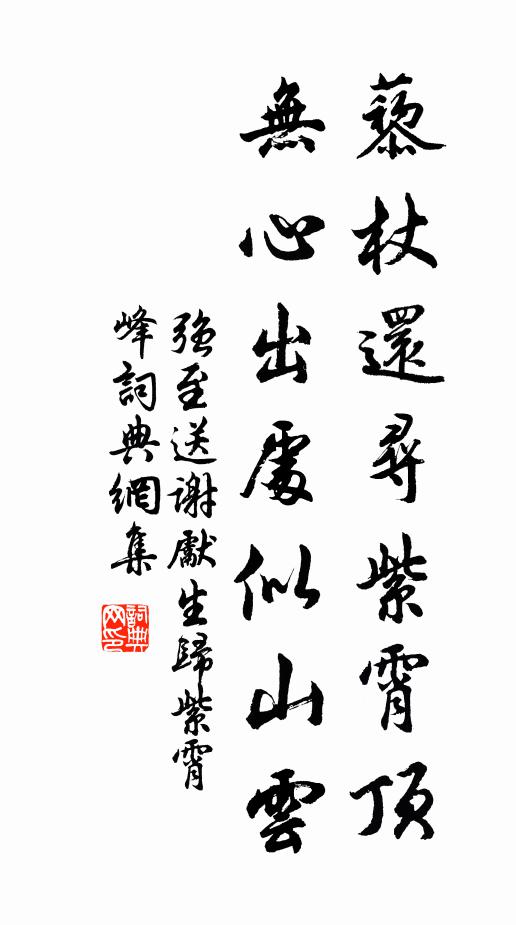 藜杖還尋紫霄頂
無心出處似山雲
強至送謝獻生歸紫霄
峰詞典網集
詞典
网印